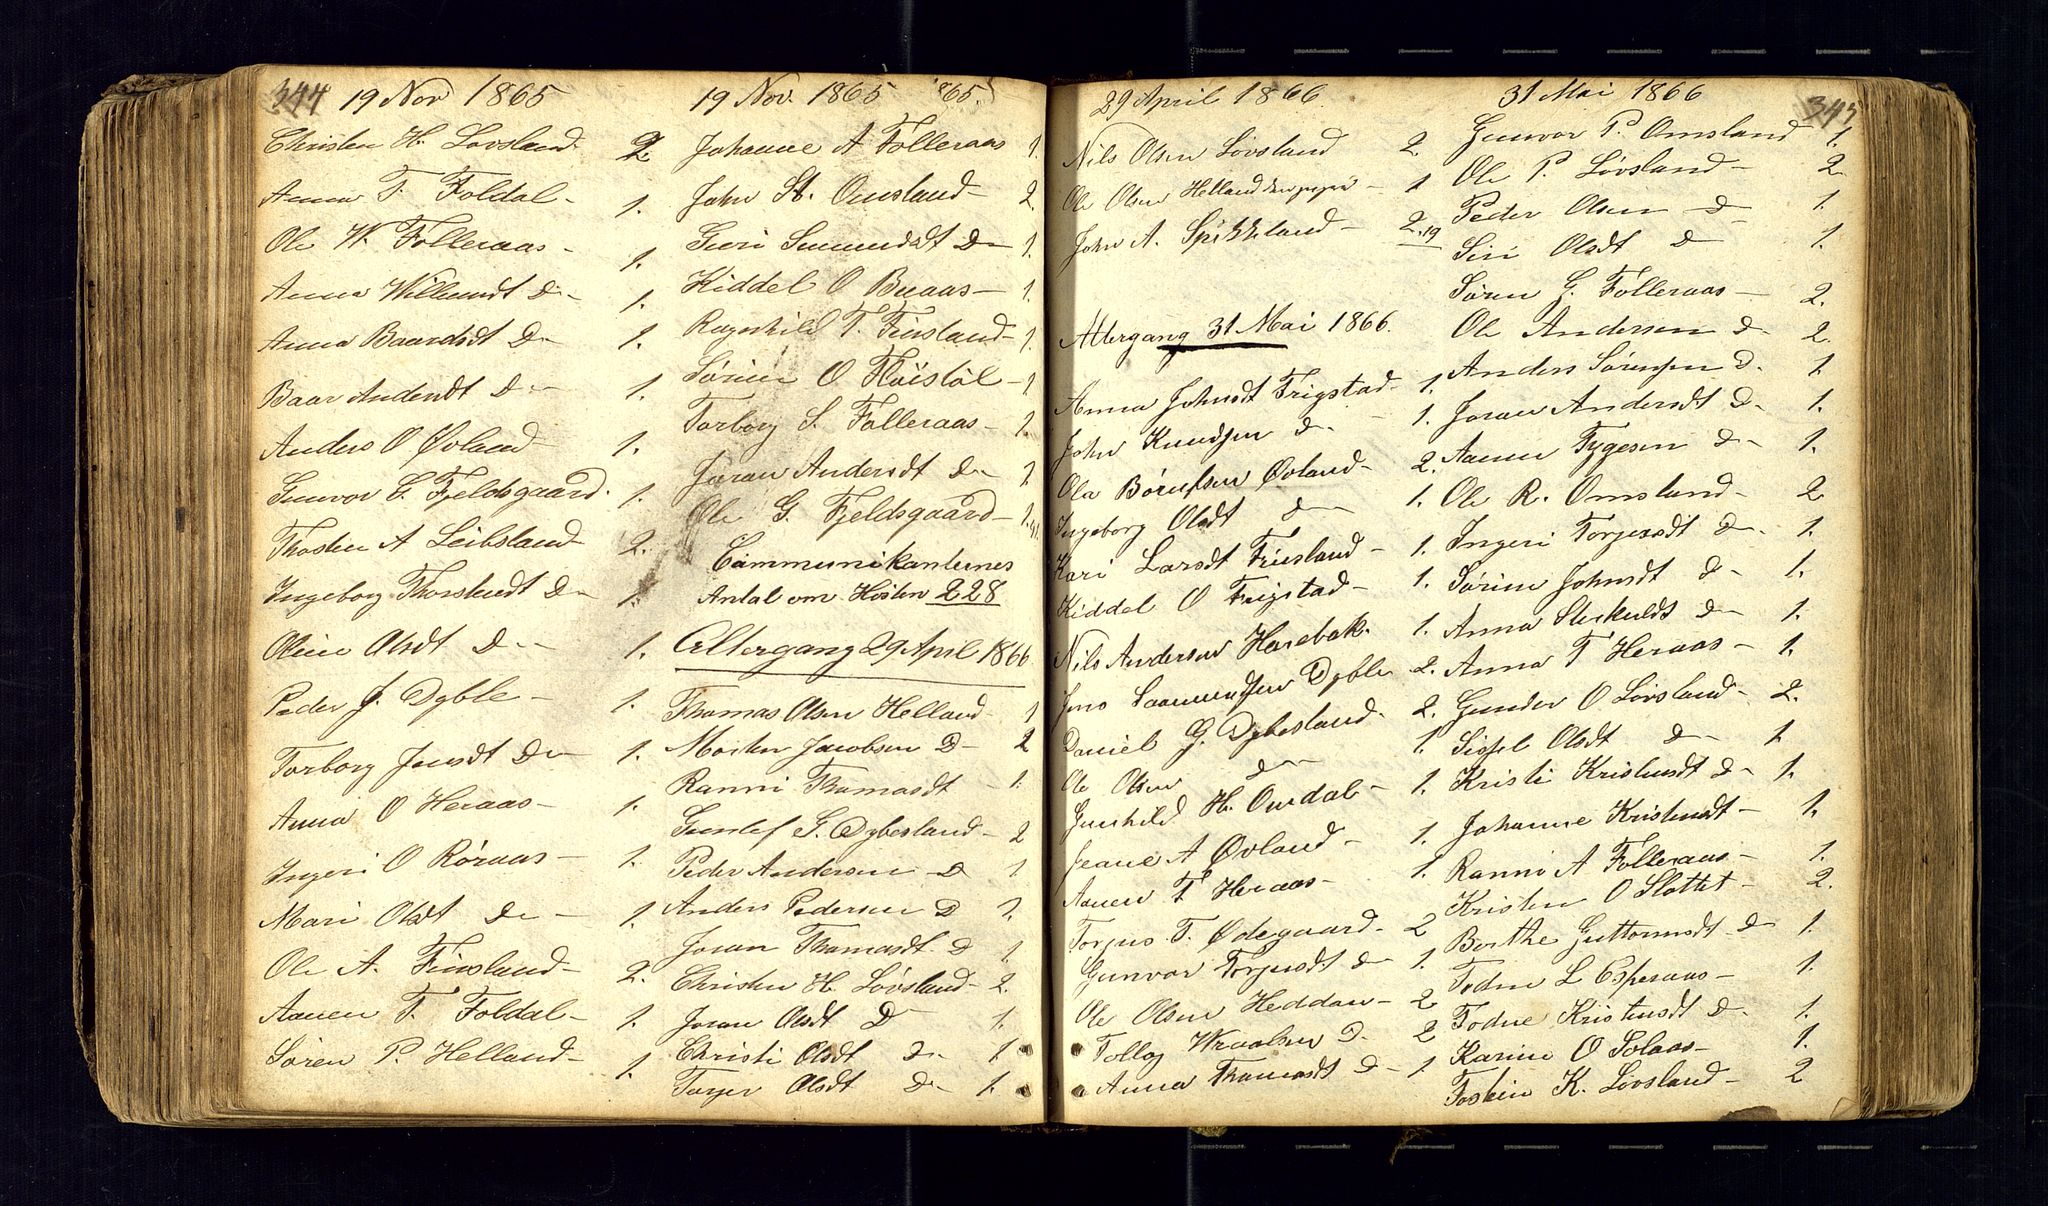 344 19 Nov 1865
Christen H. Lovsland 2.
Anna T. Foldal - 1.
Ole W. Følleraas - 1.
Anna Willumdt D - 1.
Anna Baardsdt D - 1.
Baar Andersdt D - 1.
Anders O Øvland 1.
Gunvor E. Fjeldsgaard. 1.
Thosten A Leibsland 2.
Ingeborg Thorstendt D - 1.
Oline Olsdt D - 1.
Peder J. Dyble - 1.
Torborg Jensdt D - 1.
Anna O Heraas - 1.
Ingeri O Røraas - 1.
Mari Olsdt D - 1.
Ole A. Finsland - 2.
Aanen T. Foldal - 1.
Søren P. Helland - 1.
19 Nov. 1865 '65
Johanne A Følleraas 1.
John St. Omsland - 2.
Guri Gunnuldt D - 1.
Kiddel O Buaas - 1.
Ragnhild T. Finsland - 1.
Sørine O Høistøl - 1
Torborg S. Følleraas - 1.
Joran Andersdt D - 1
Ole G. Fjeldsgaard - 1.
Communikanternes
Antal om Høsten 228
Altergang 29 April 1866
Thomas Olsen Helland - 1
Mosten Jacobsen D - 2
Ranni Thomasdt - 1.
Guntef G. Dybesland - 2
Peder Andersen D 1
Anders Pedersen D 1.
Joran Thomasdt D 1
Christen H. Løvsland - 2.
Joran Olsdt D 1.
Christi Olsdt D - 1
Torjer Olsdt D - 1.
29 April 1866.
Nils Olsen Lovsland 2.
Ole Olsen Helland - 1
John A. Spikkeland - 2. 19
Altergang 31 Mai 1866.
Anna Johnsdt Frigstad - 1.
John Knudsen D - 1.
Ola Børufsen Øvland - 2.
Ingeborg Olsdt D - 1.
Kari Larsdt Finsland - 1.
Kiddel O Frigstad - 1.
Nils Andersen Harebak. 1.
Jens Saamundsen Dyble 2.
Daniel G. Dybesland. 2.
Ole Olsen D - 1.
Gunhild H. Omdal - 1.
Jeane A Øvland - 1.
Aanen T Heraas - 1.
Torjus T. Ødegaard - 2
Gunvor Torjusdt D - 1.
Ole Olsen Heddan - 2
Tollog Wraalsen D. 2
Anna Thomasdt D - 1
31 Mai 1866 345
Gunvor P. Omsland 1.
Ole P. Løvsland - 2.
Peder Olsen D 1.
Siri Olsdt D 1.
Søren G. Følleraas - 2.
Ole Andersen D - 2.
Anders Sørensen D. 1.
Joran Andersdt D - 1.
Aanen Tygesen D - 1.
Ole R. Omsland - 2
Ingeri Torjusdt D - 1.
Sørine Johnsdt D - 1.
Anna Sterkuldt D - 1.
Anna T Heraas - 1.
Gunder O Lovsland - 2.
Sissel Olsdt D - 1
Kristi Kristensdt D - 1.
Johanne Kristensdt - 1.
Ranni A Følleraas - 1.
Kristen O Slottet - 2.
Berthe Guttormsdt - D 1.
Todne L Esperaas - 1.
Todne Kristensdt D - 1.
Karine O Solaas - 1.
Tosten K. Lovsland - 2